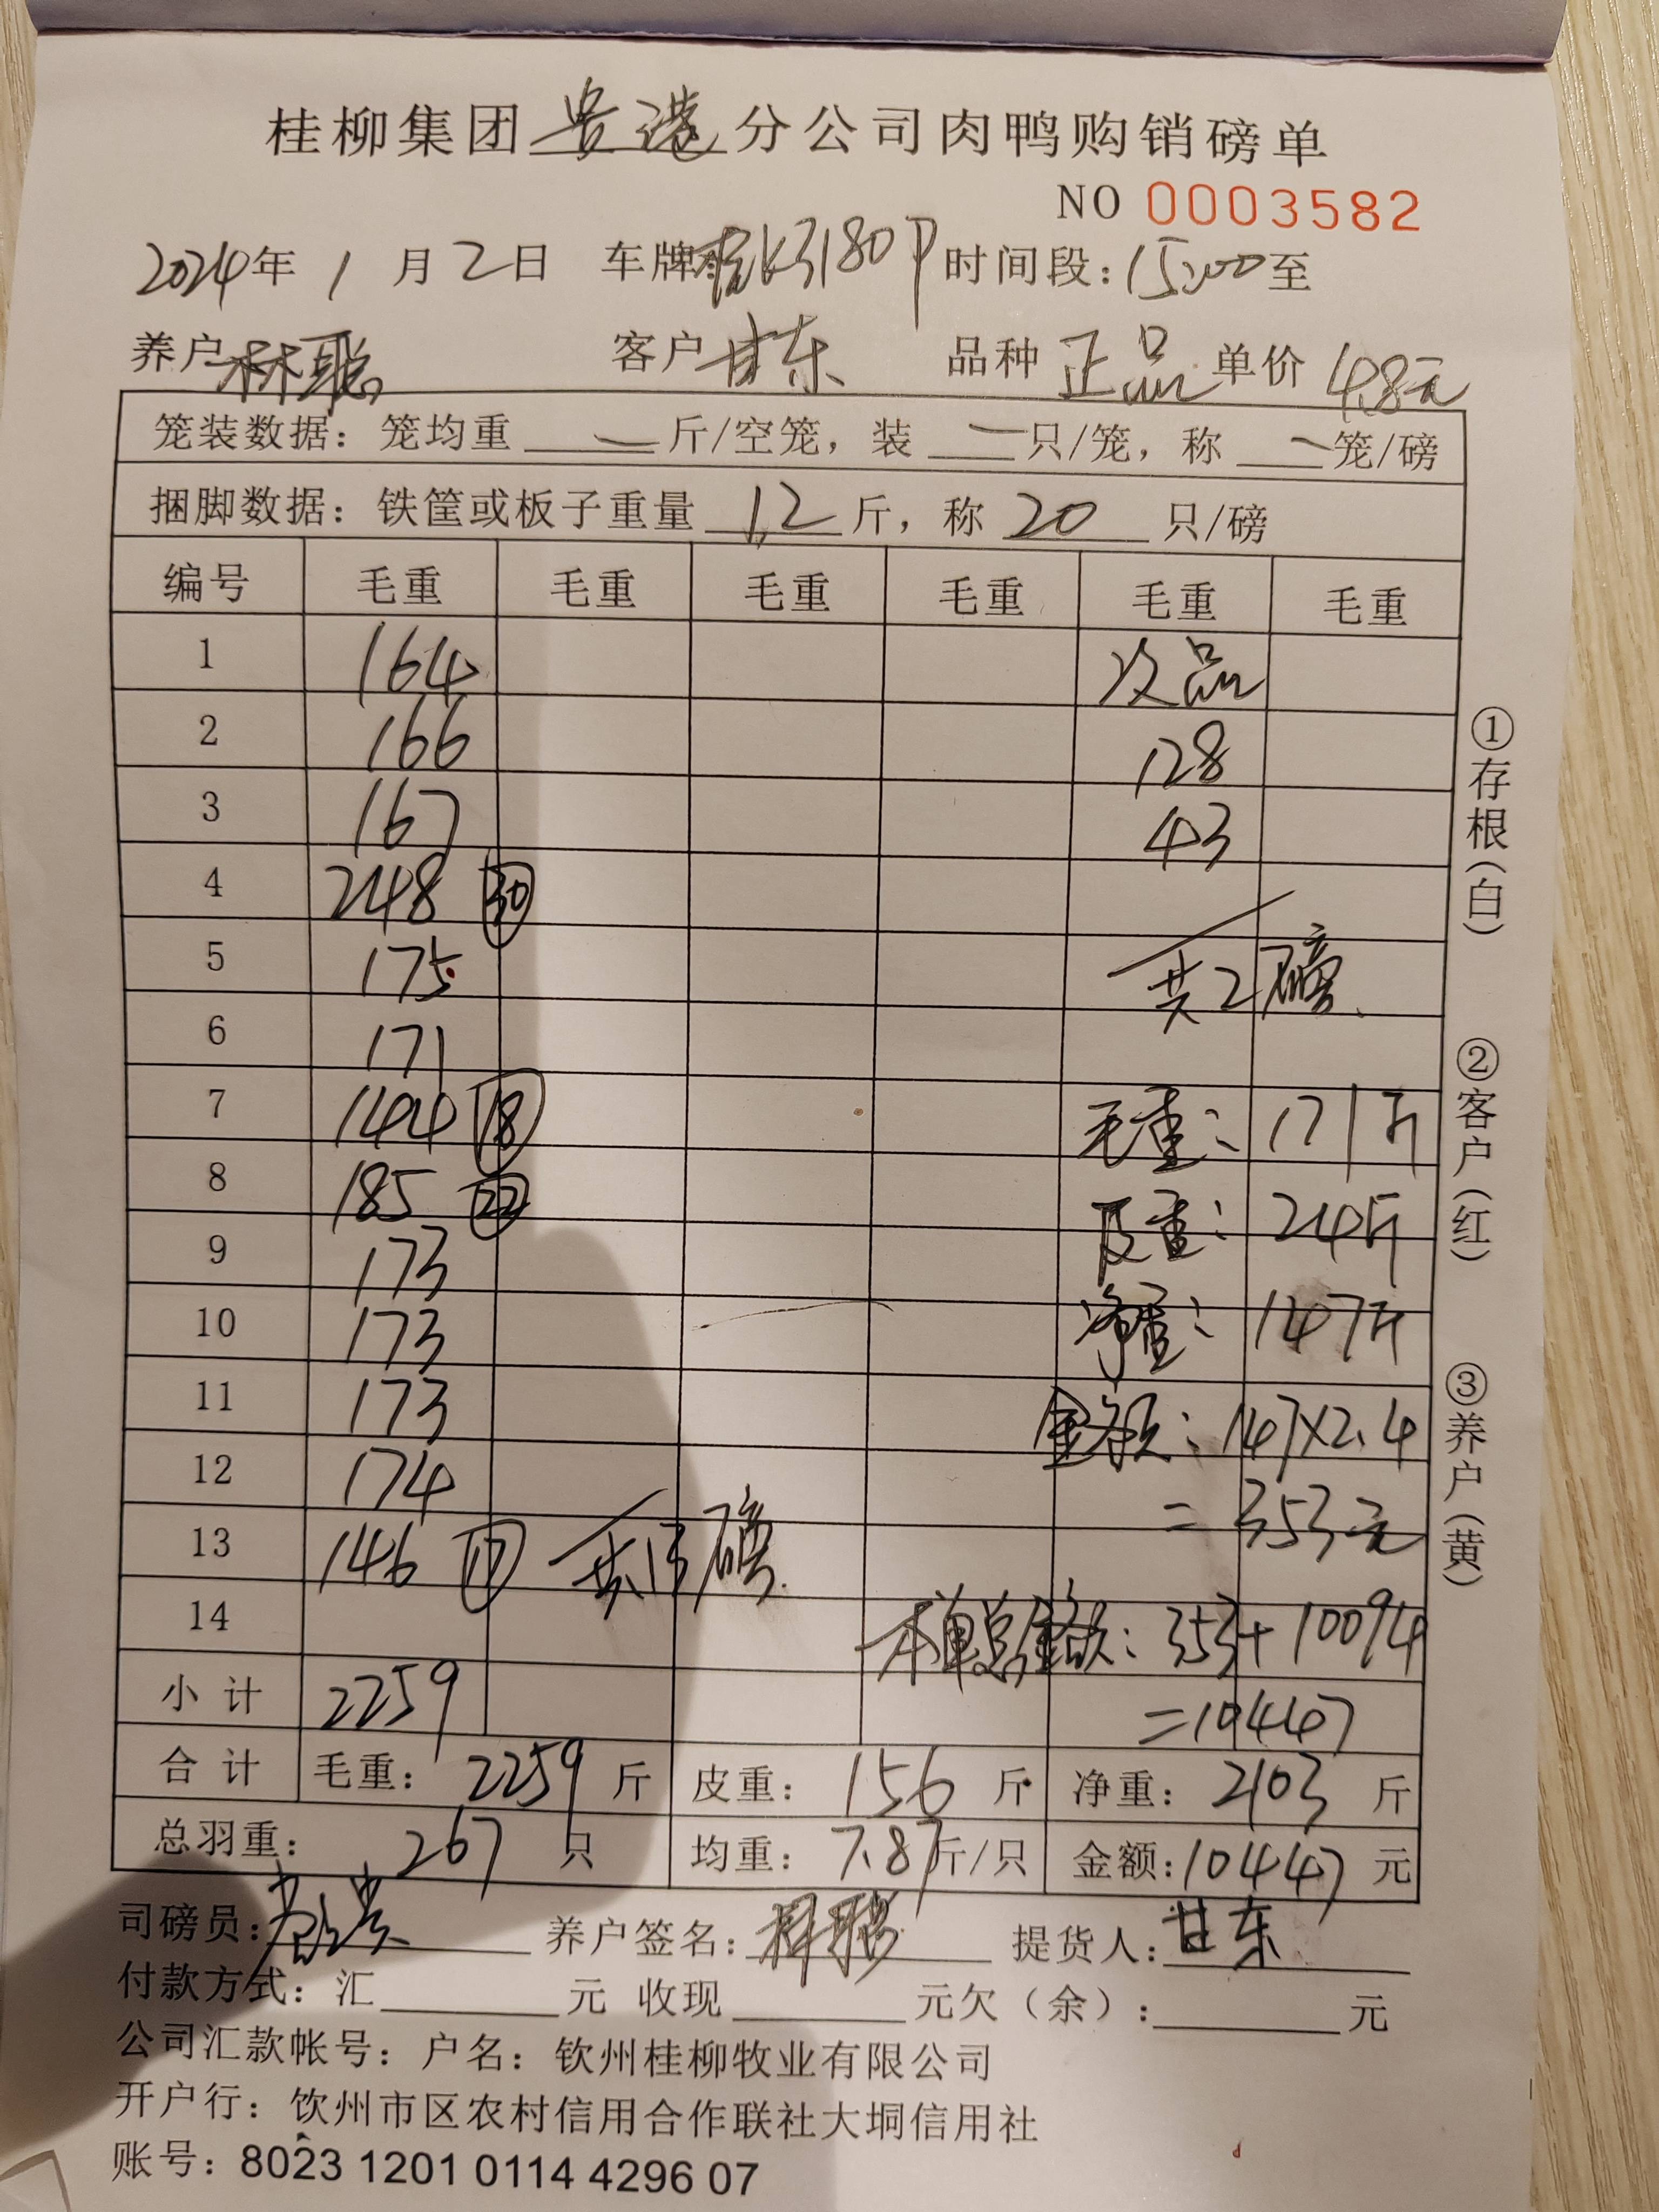 桂柳集团贵港分公司肉鸭购销磅单
NO 0003582
2024年 1 月 2 日 车牌:桂K3180P 时间段:15:00至
养户 林聪 客户 甘东 品种 正品 单价 4.8元
笼装数据: 笼均重 — 斤/空笼, 装 — 只/笼, 称 — 笼/磅
捆脚数据: 铁筐或板子重量 12 斤, 称 20 只/磅
编号 毛重 毛重 毛重 毛重 毛重 毛重
1 164 次品
2 166 128
3 167 43
4 248 30
5 175 共2磅
6 171
7 144 18 毛重: 171斤
8 185 22 皮重: 24斤
9 173
10 173 净重: 147斤
11 173 金额: 147×2.4
12 174 = 353元
13 146 17 共13磅
14 本单总金额: 353+10094
小计 2259 =10447
合计 毛重: 2259 斤 皮重: 156 斤 净重: 2103 斤
总羽重: 267 只 均重: 7.87斤/只 金额:10447 元
司磅员: 养户签名: 林聪 提货人: 甘东
付款方式: 汇 元 收现 元欠(余): 元
公司汇款帐号: 户名: 钦州桂柳牧业有限公司
开户行: 钦州市区农村信用合作联社大垌信用社
账号: 8023 1201 0114 4296 07
①存根(白)
②客户(红)
③养户(黄)